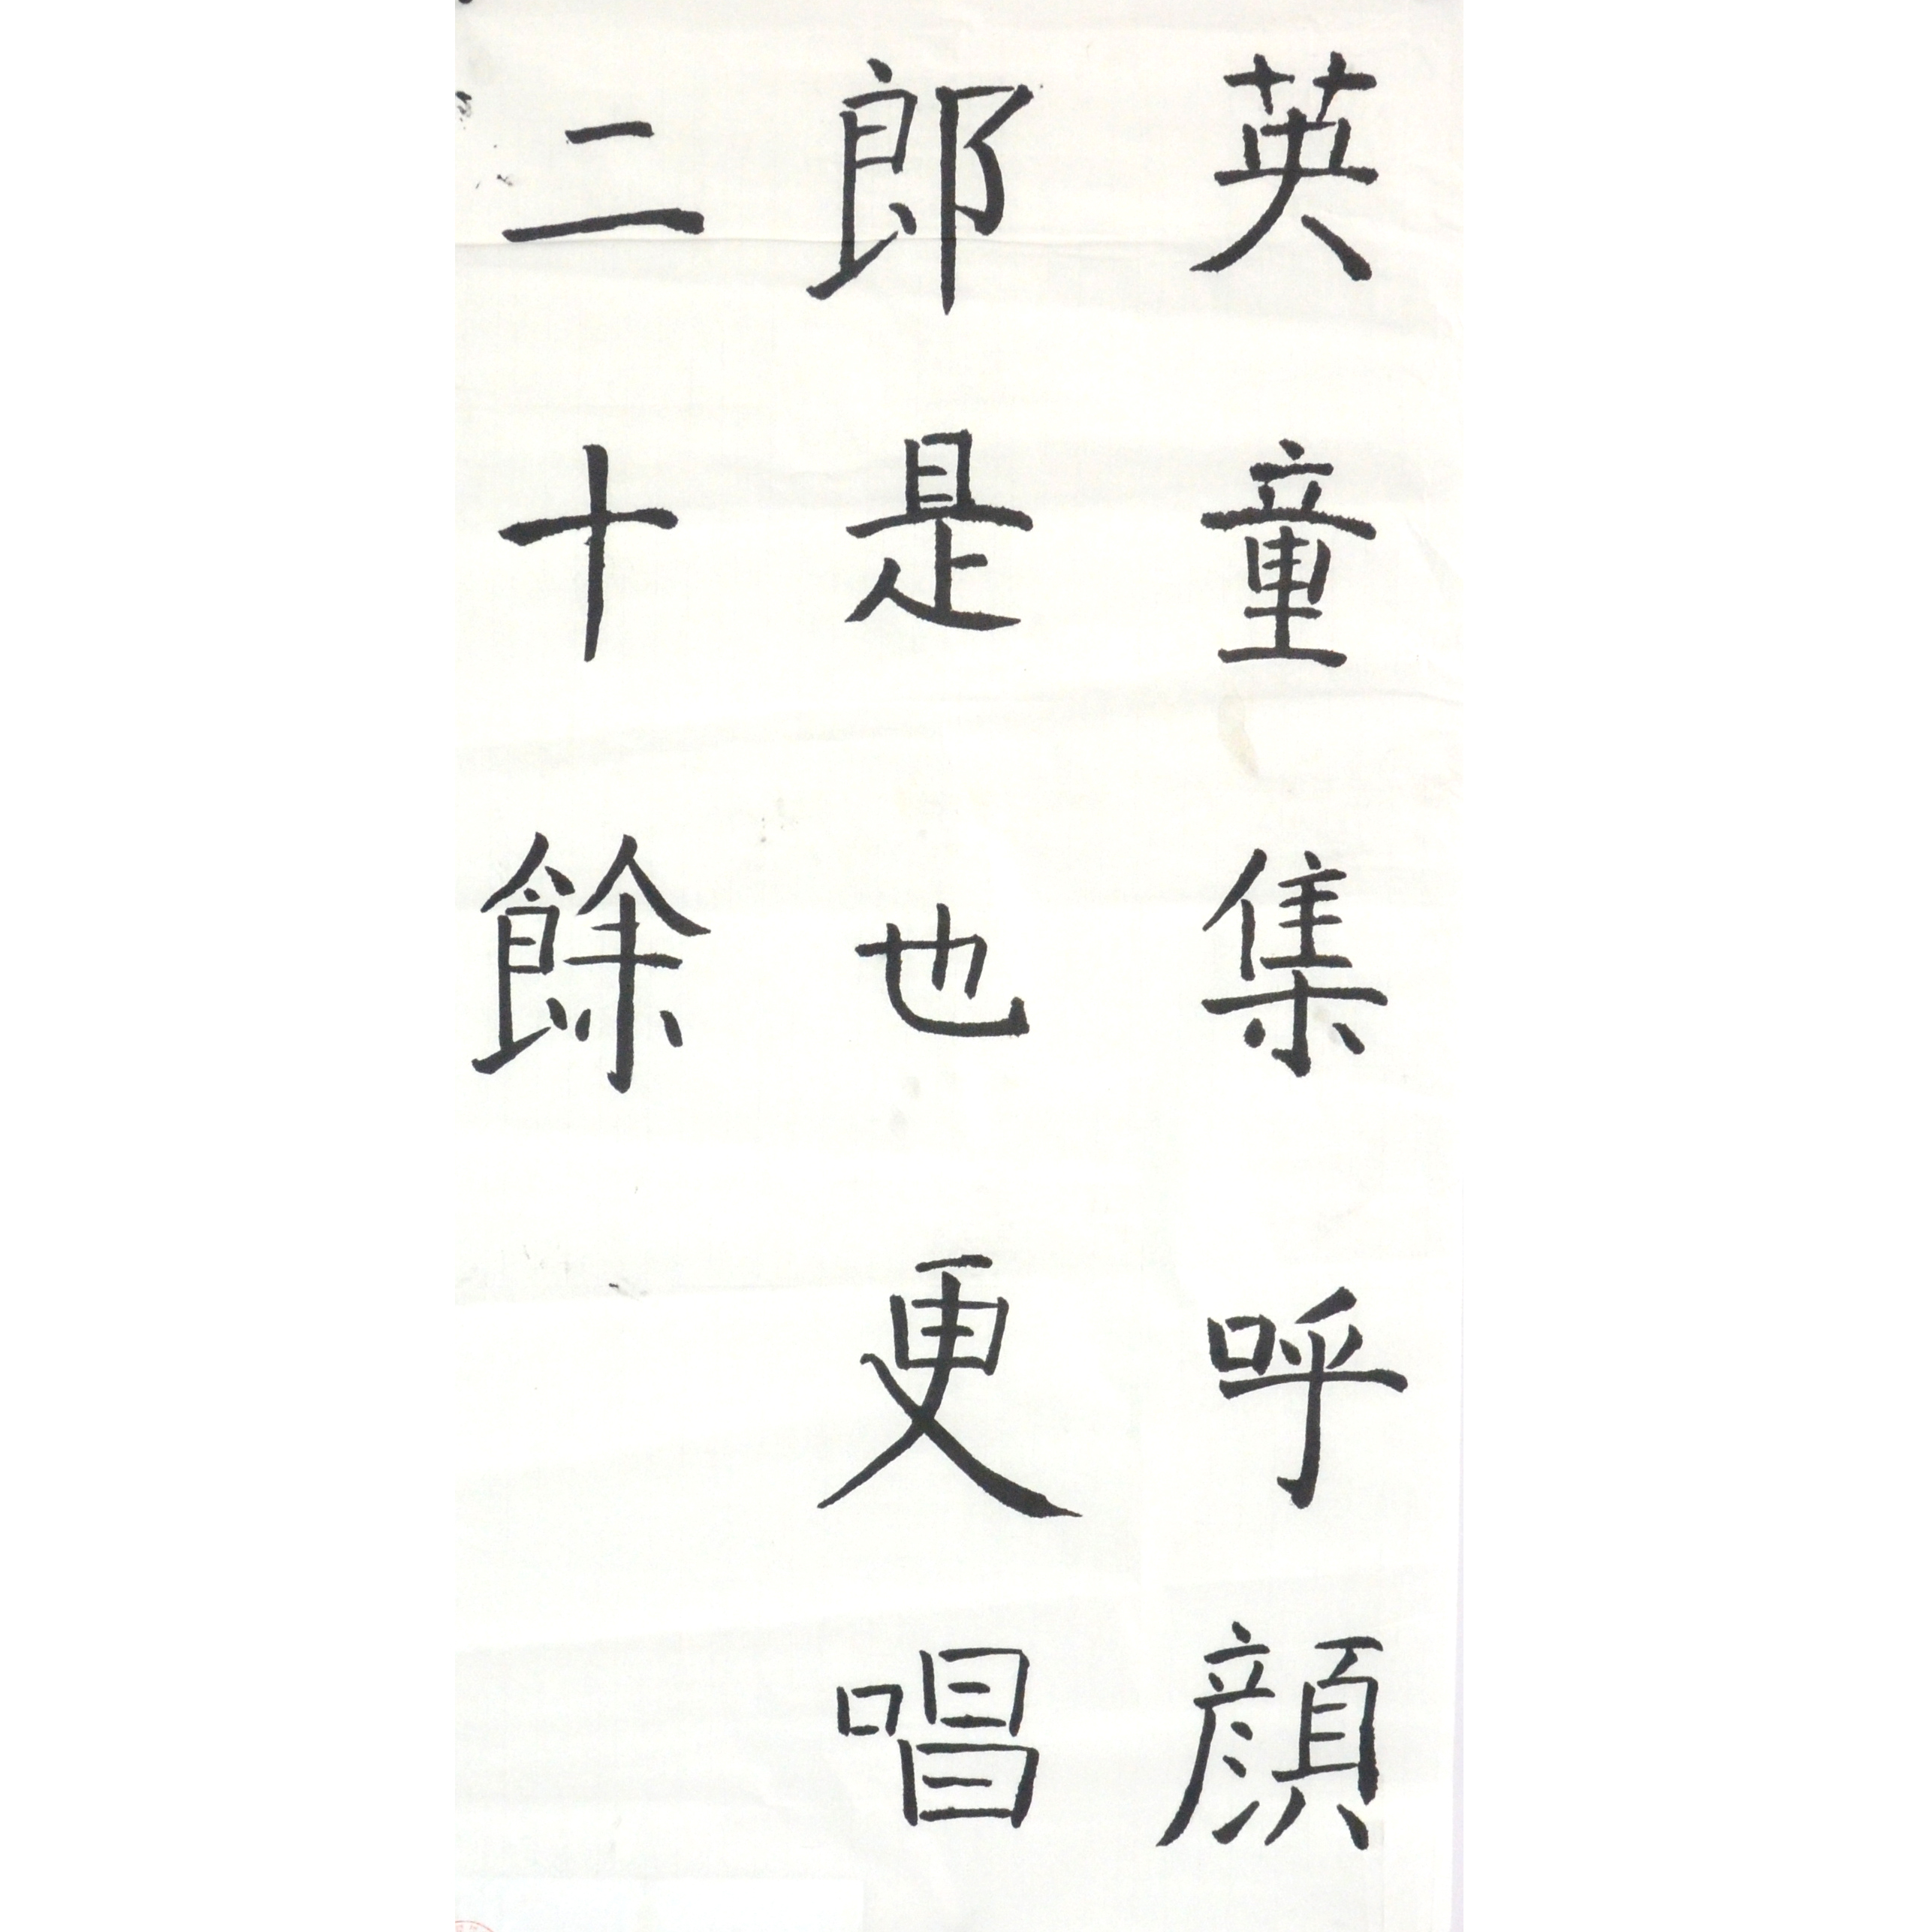 英童集呼顔
郎是也更唱
二十餘